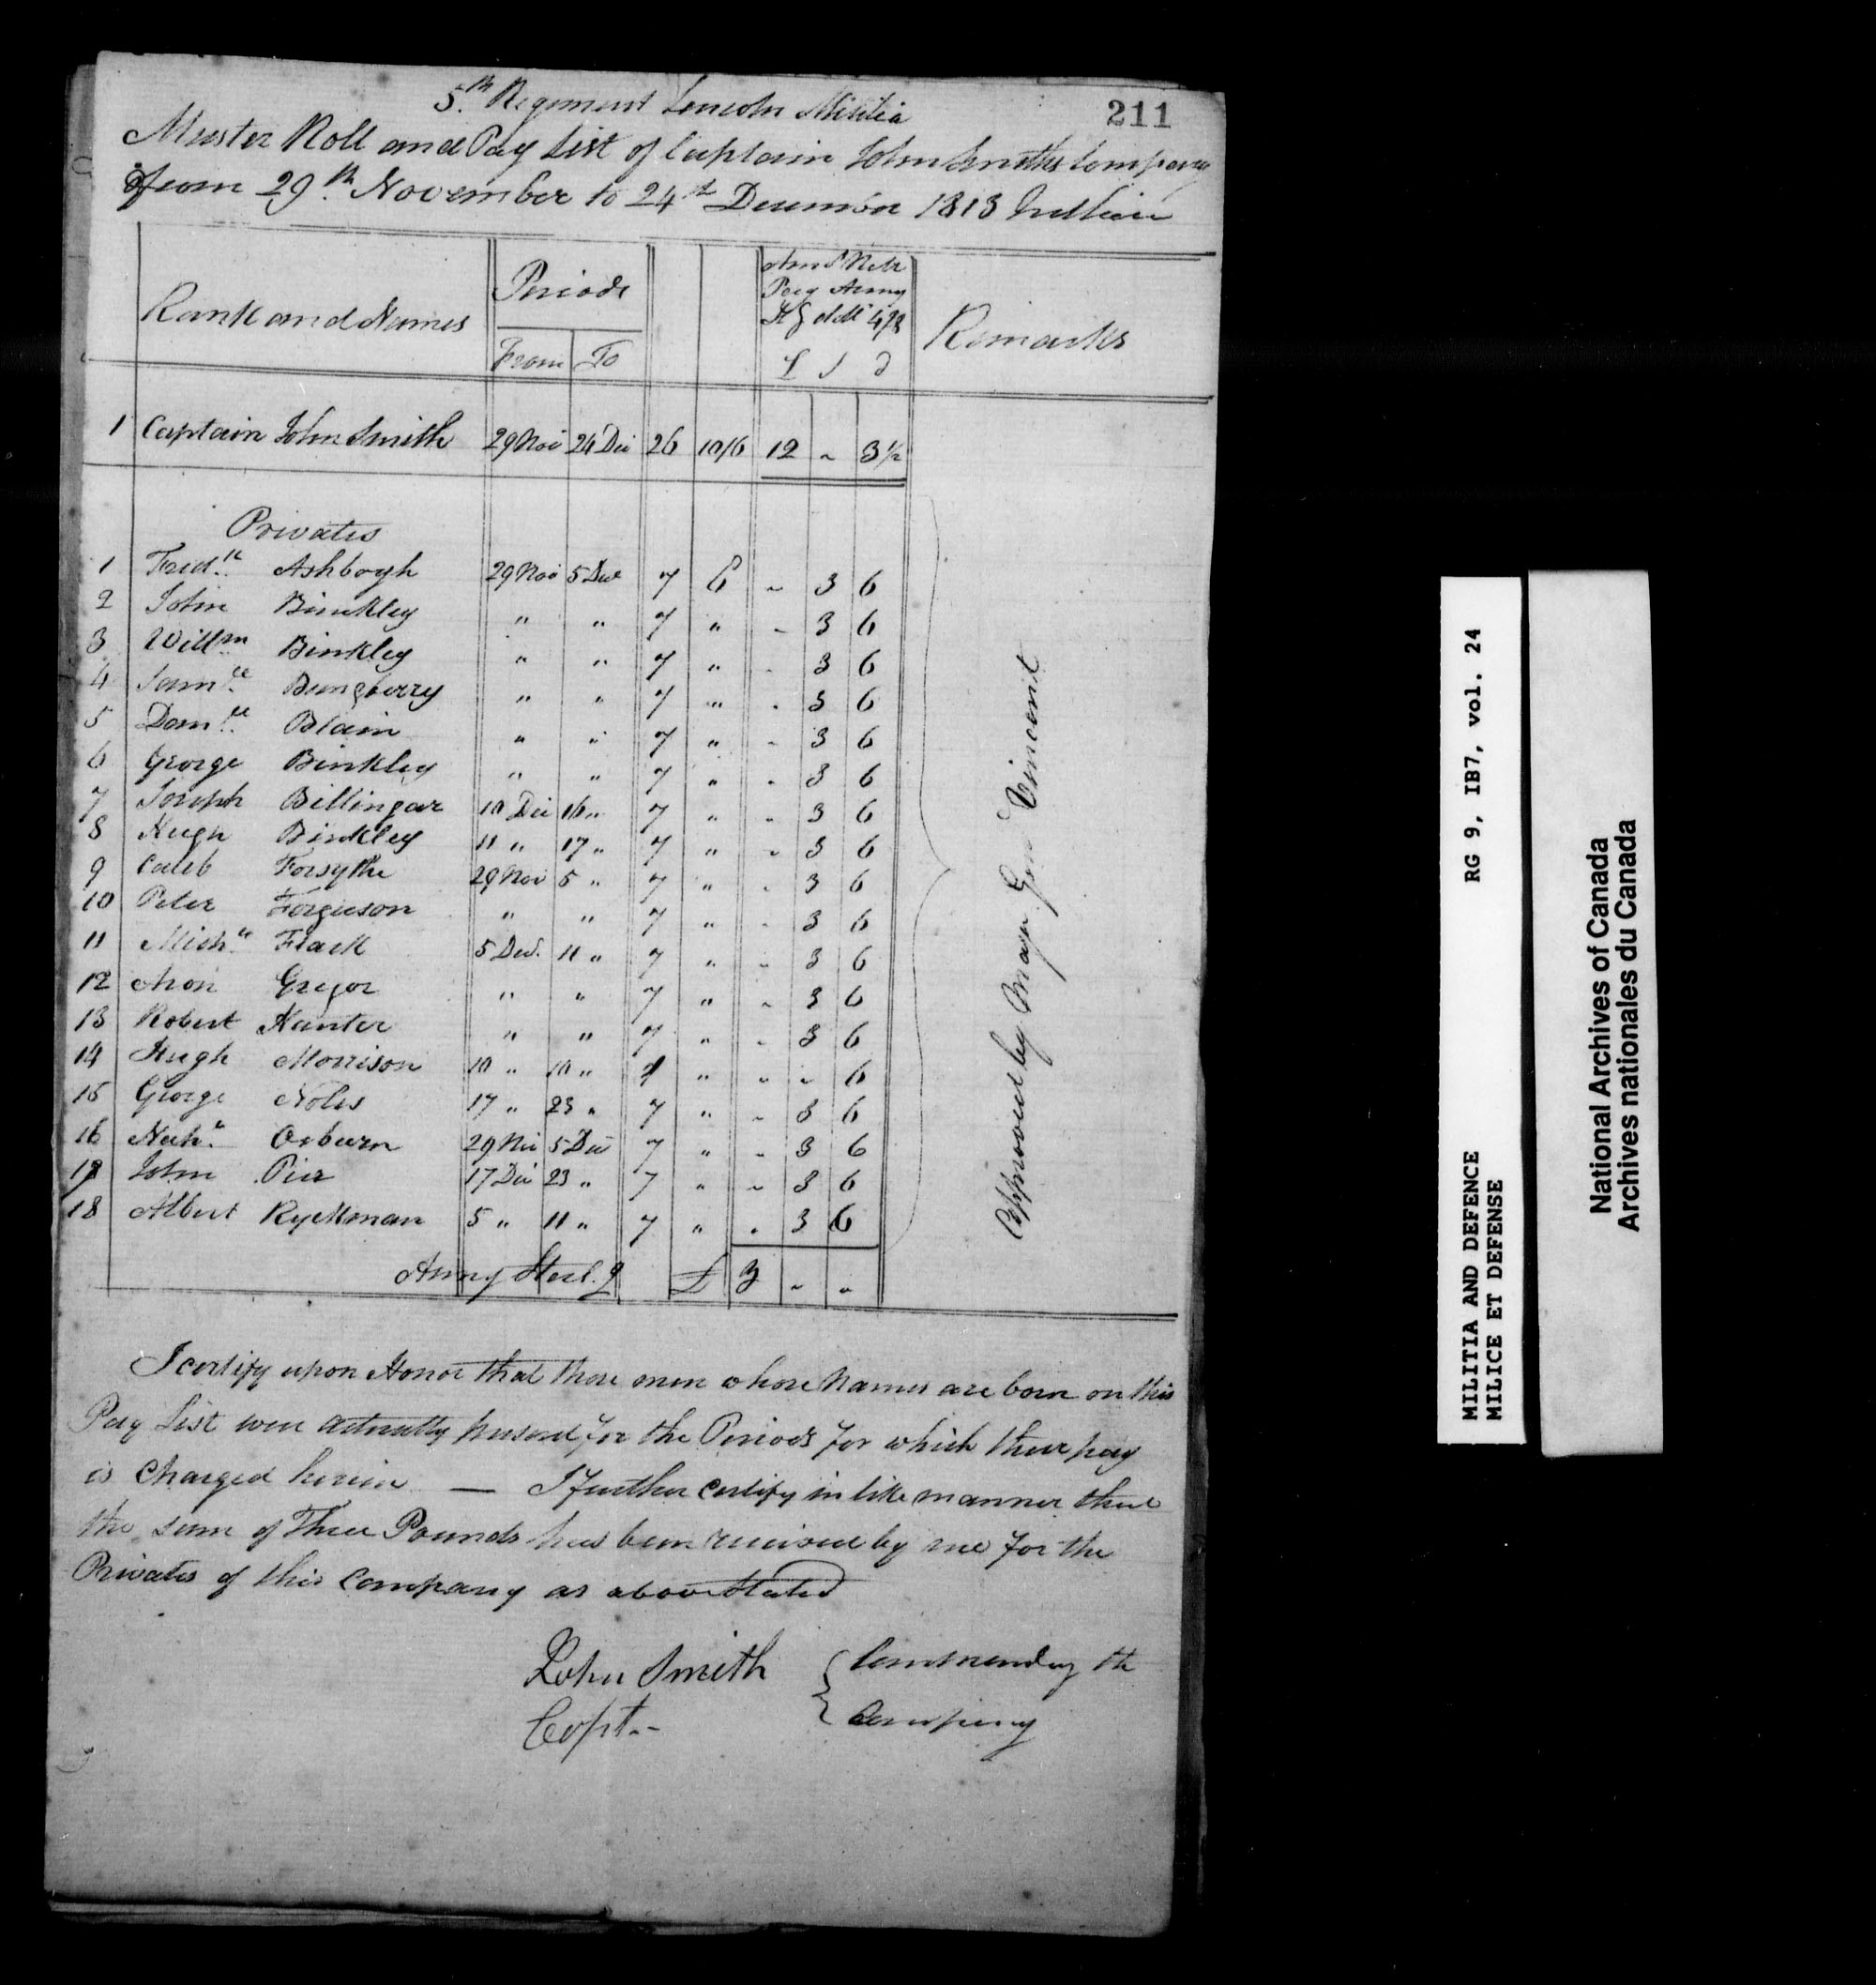 211
5.th Regiment Lincoln Militia
Muster Roll and Pay List of Captain John Smiths Company
from 29.th November to 24th December 1813 Inclusive
Rank and Names Periods Remarks
From To £ s d
1 Captain John Smith 29 Nov 24 Dec 26 10/6 12 " 3½
Privates
1 Fred.k Ashbogh 29 Nov 5 Dec 7 6 " 3 6
2 John Binkley " " 7 " " 3 6
3 Willm Binkley " " 7 " " 3 6
4 Sam.ll Bungberry " " 7 " " 3 6
5 Dan.ll Blain " " 7 " " 3 6
6 George Binkley " " 7 " " 3 6
7 Joseph Billingar 10 Dec 16 " 7 " " 3 6
8 Hugh Binkley 11 " 17 " 7 " " 3 6
9 Caleb Forsythe 29 Nov 5 " 7 " " 3 6
10 Peter Forgueson " " 7 " " 3 6
11 Mich.ll Flack 5 Dec. 11 " 7 " " 3 6
12 Aron Gregor " " 7 " " 3 6
13 Robert Hunter " " 7 " " 3 6
14 Hugh Morrison 10 " 10 " 1 " " " 6
15 George Noles 17 " 23 " 7 " " 3 6
16 Nath.l Osburn 29 Nov 5 Dec 7 " " 3 6
17 John Pier 17 Dec 23 " 7 " " 3 6
18 Albert Ryckman 5 " 11 " 7 " " 3 6
Army Sterl.g £ 3 " "
Approved by Major Gen Vincent
I certify upon Honor that those men whose Names are born on this
Pay List were actually present for the Periods for which their pay
is Charged herein — I further certify in like manner that
the sum of Three Pounds has been received by me for the
Privates of this Company as above Stated
John Smith { Commanding the
Capt.- Company
MILITIA AND DEFENCE RG 9, IB7, vol. 24
MILICE ET DEFENSE
National Archives of Canada
Archives nationales du Canada